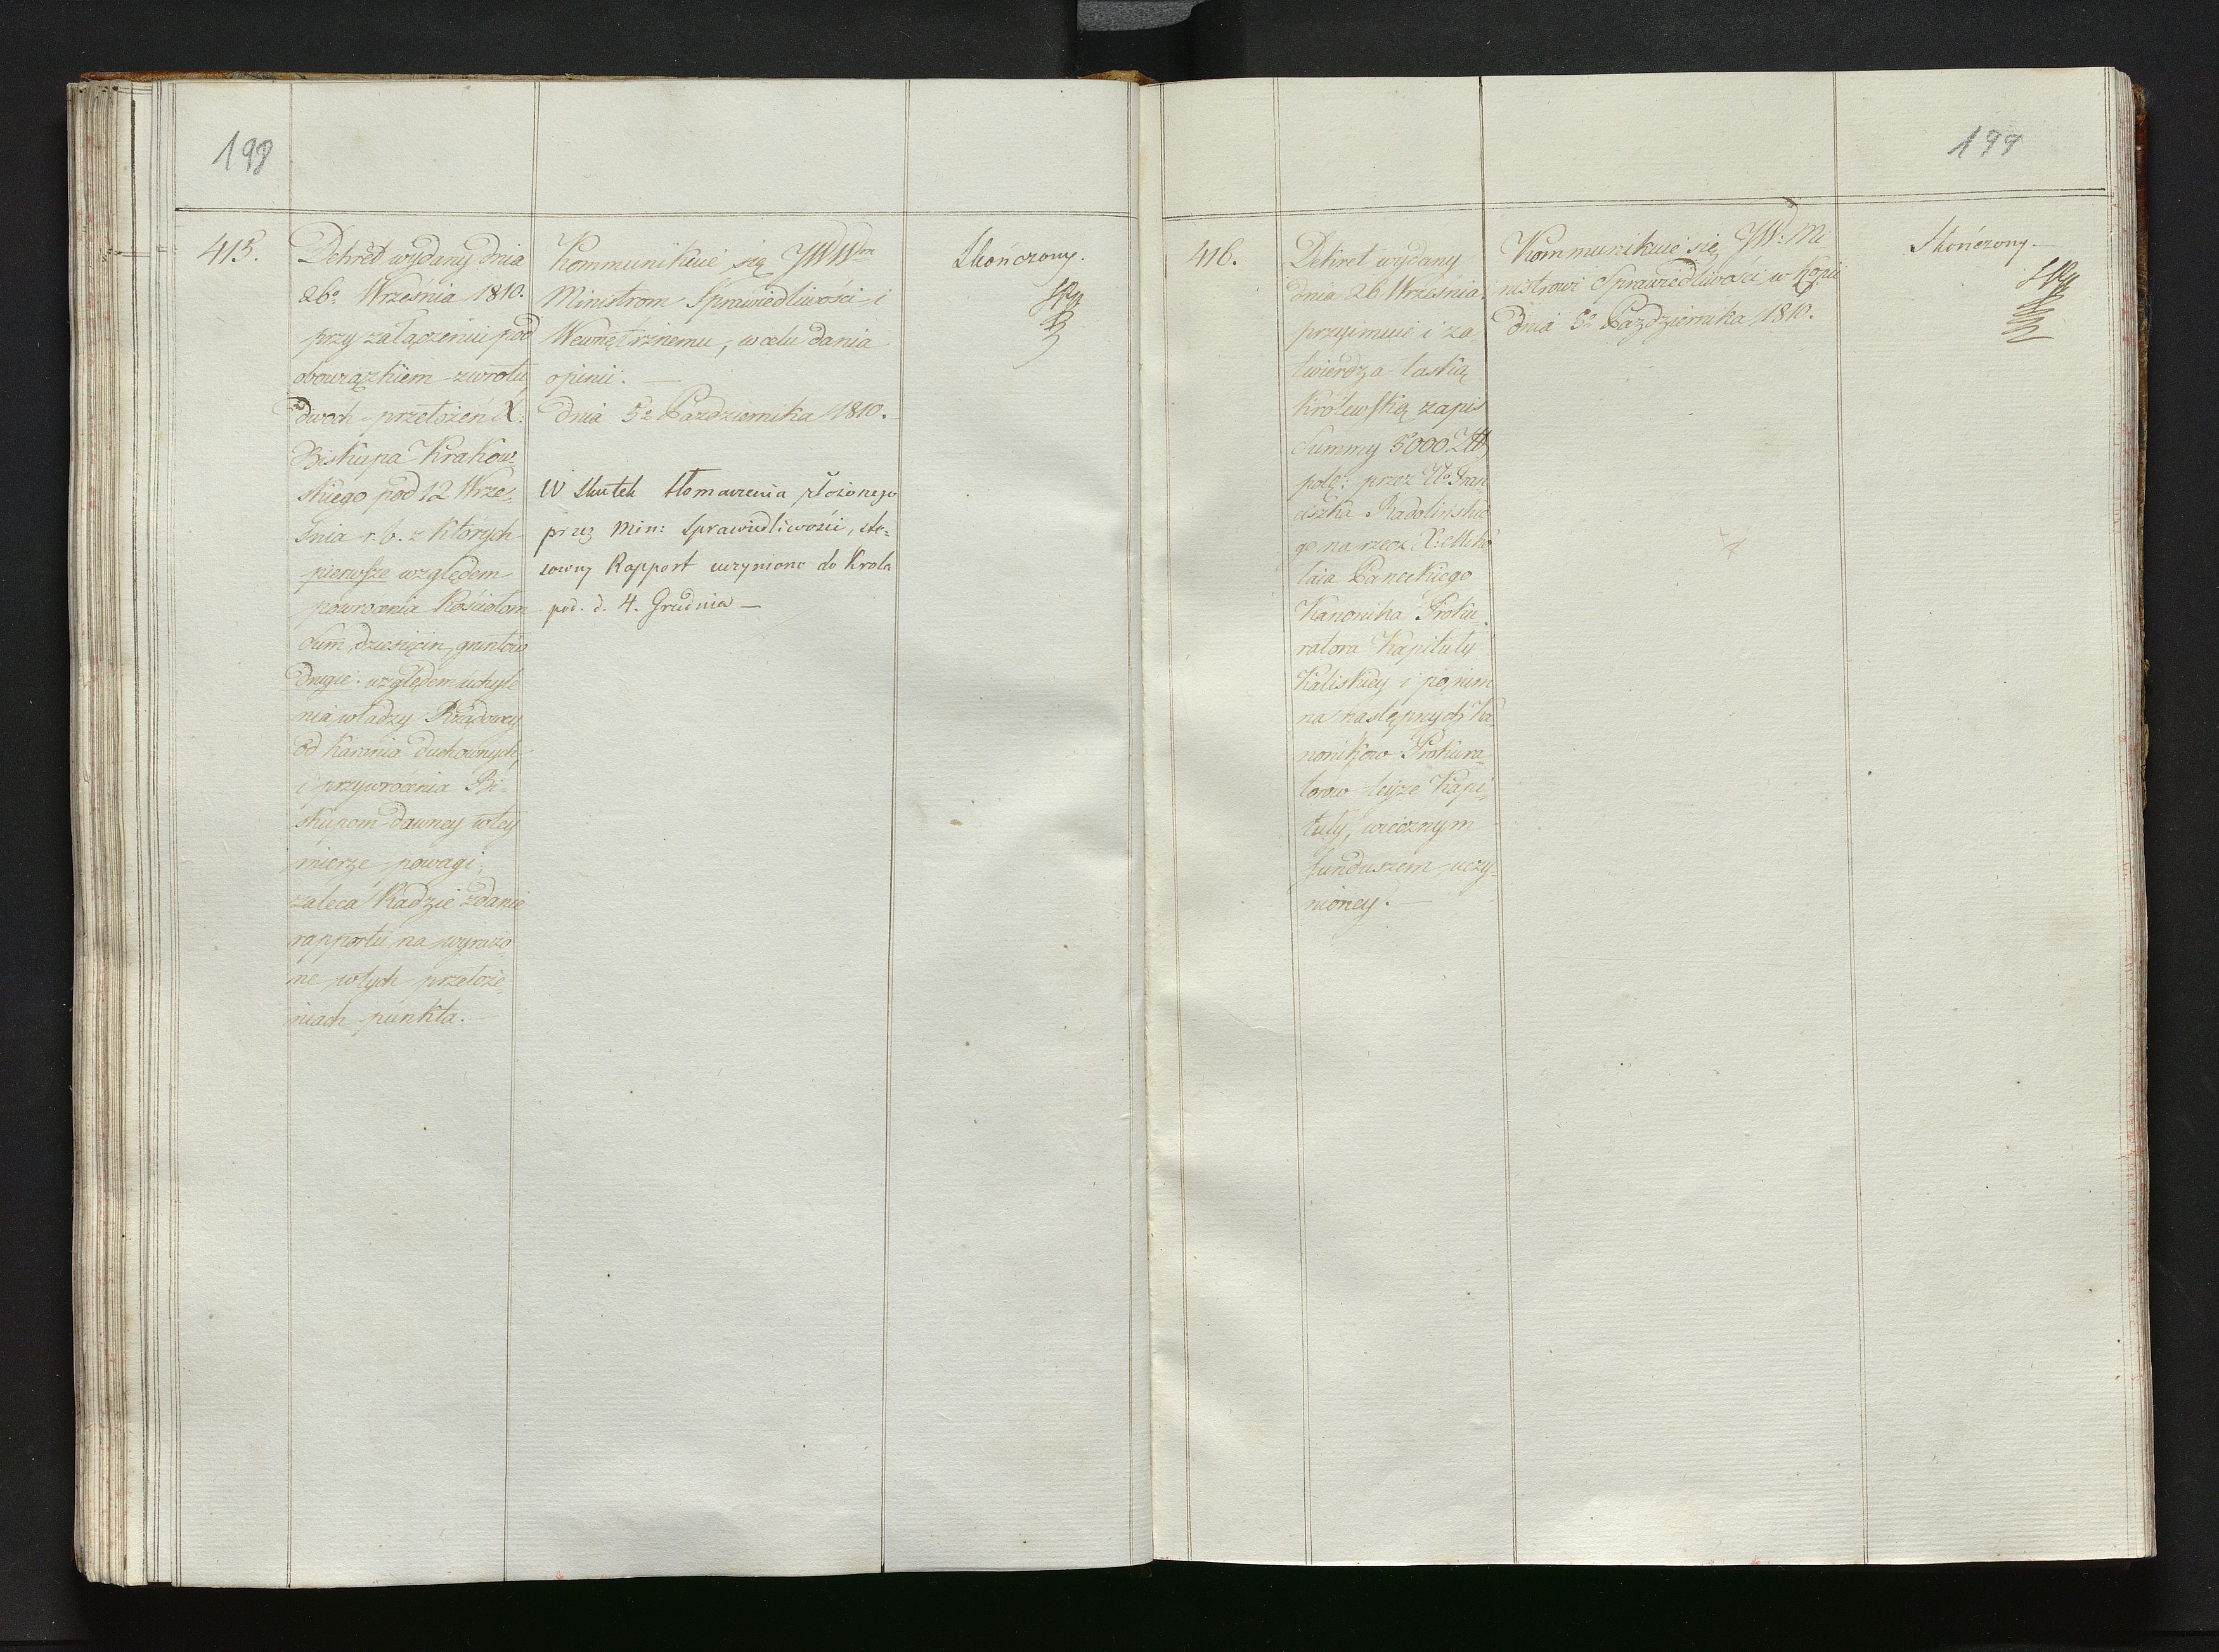 198
415.
Dekret wydany dnia
26º Września 1810.
przy załączeniu pod
obowiązkiem zwrotu
dwoch przełożeń X:
Biskupa Krakow-
skiego pod 12 Wrze-
śnia r. b. z których
pierwsze względem
powrócenia Kościołom
Sum, dziesięcin, gruntów
drugie względem uchyle
nia władzy Rządowey
od karania duchownych,
i przywrócenia Bi-
skupom dawney w tey
mierze powagi,
zaleca Radzie zdanie
rapportu na wyrażo
ne w tych przełoże-
niach punkta.
Kommunikuie się JWW
Ministrom Sprawiedliwości i
Wewnętrznemu, w celu dania
opinii. —
dnia 5º Października 1810.
W skutek tłomaczenia złożonego
przez Min: Sprawiedliwości, sto-
sowny Rapport uczyniono do Krola
pod. d. 4. Grudnia —
Skończony.
199
416.
Dekret wydany
dnia 26 Września
przyimuie i za
twierdza łaską
Krolewską zapis
Summy 5000 Złt
pols: przez Fran
ciszka Radolińskie
go na rzecz X: Miko
łaia Paneckiego
Kanonika Proku-
ratora Kapituły
Kaliskiey i po nim
na następnych Ka
nonikow Prokura
torow teyże Kapi-
tuły, wiecznym
funduszem uczy-
nioney. —
Kommunikuie się JW: Mi
nistrowi Sprawiedliwości w kopii
dnia 5º Października 1810.
Skończony —